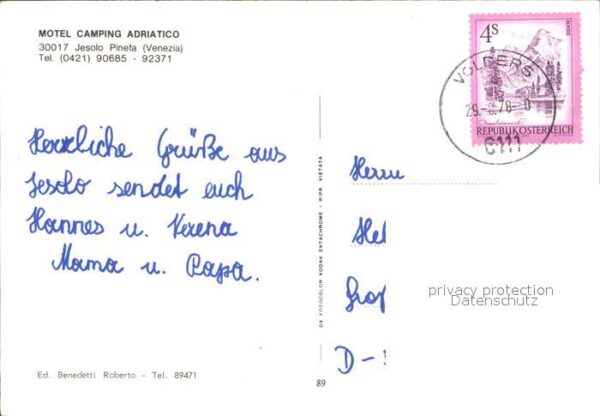 MOTEL CAMPING ADRIATICO
30017 Jesolo Pineta (Venezia)
Tel. (0421) 90685 - 92371
Herzliche Grüße aus
Jesolo sendet euch
Hannes u. Verena
Mama u. Papa.
Ed. Benedetti Roberto - Tel. 89471
DA FOTOCOLOR KODAK EKTACHROME - RIPR. VIETATA
89
4S
ALMSEE
REPUBLIK ÖSTERREICH
VOLDERS
6111
Herrn
D -
privacy protection
Datenschutz